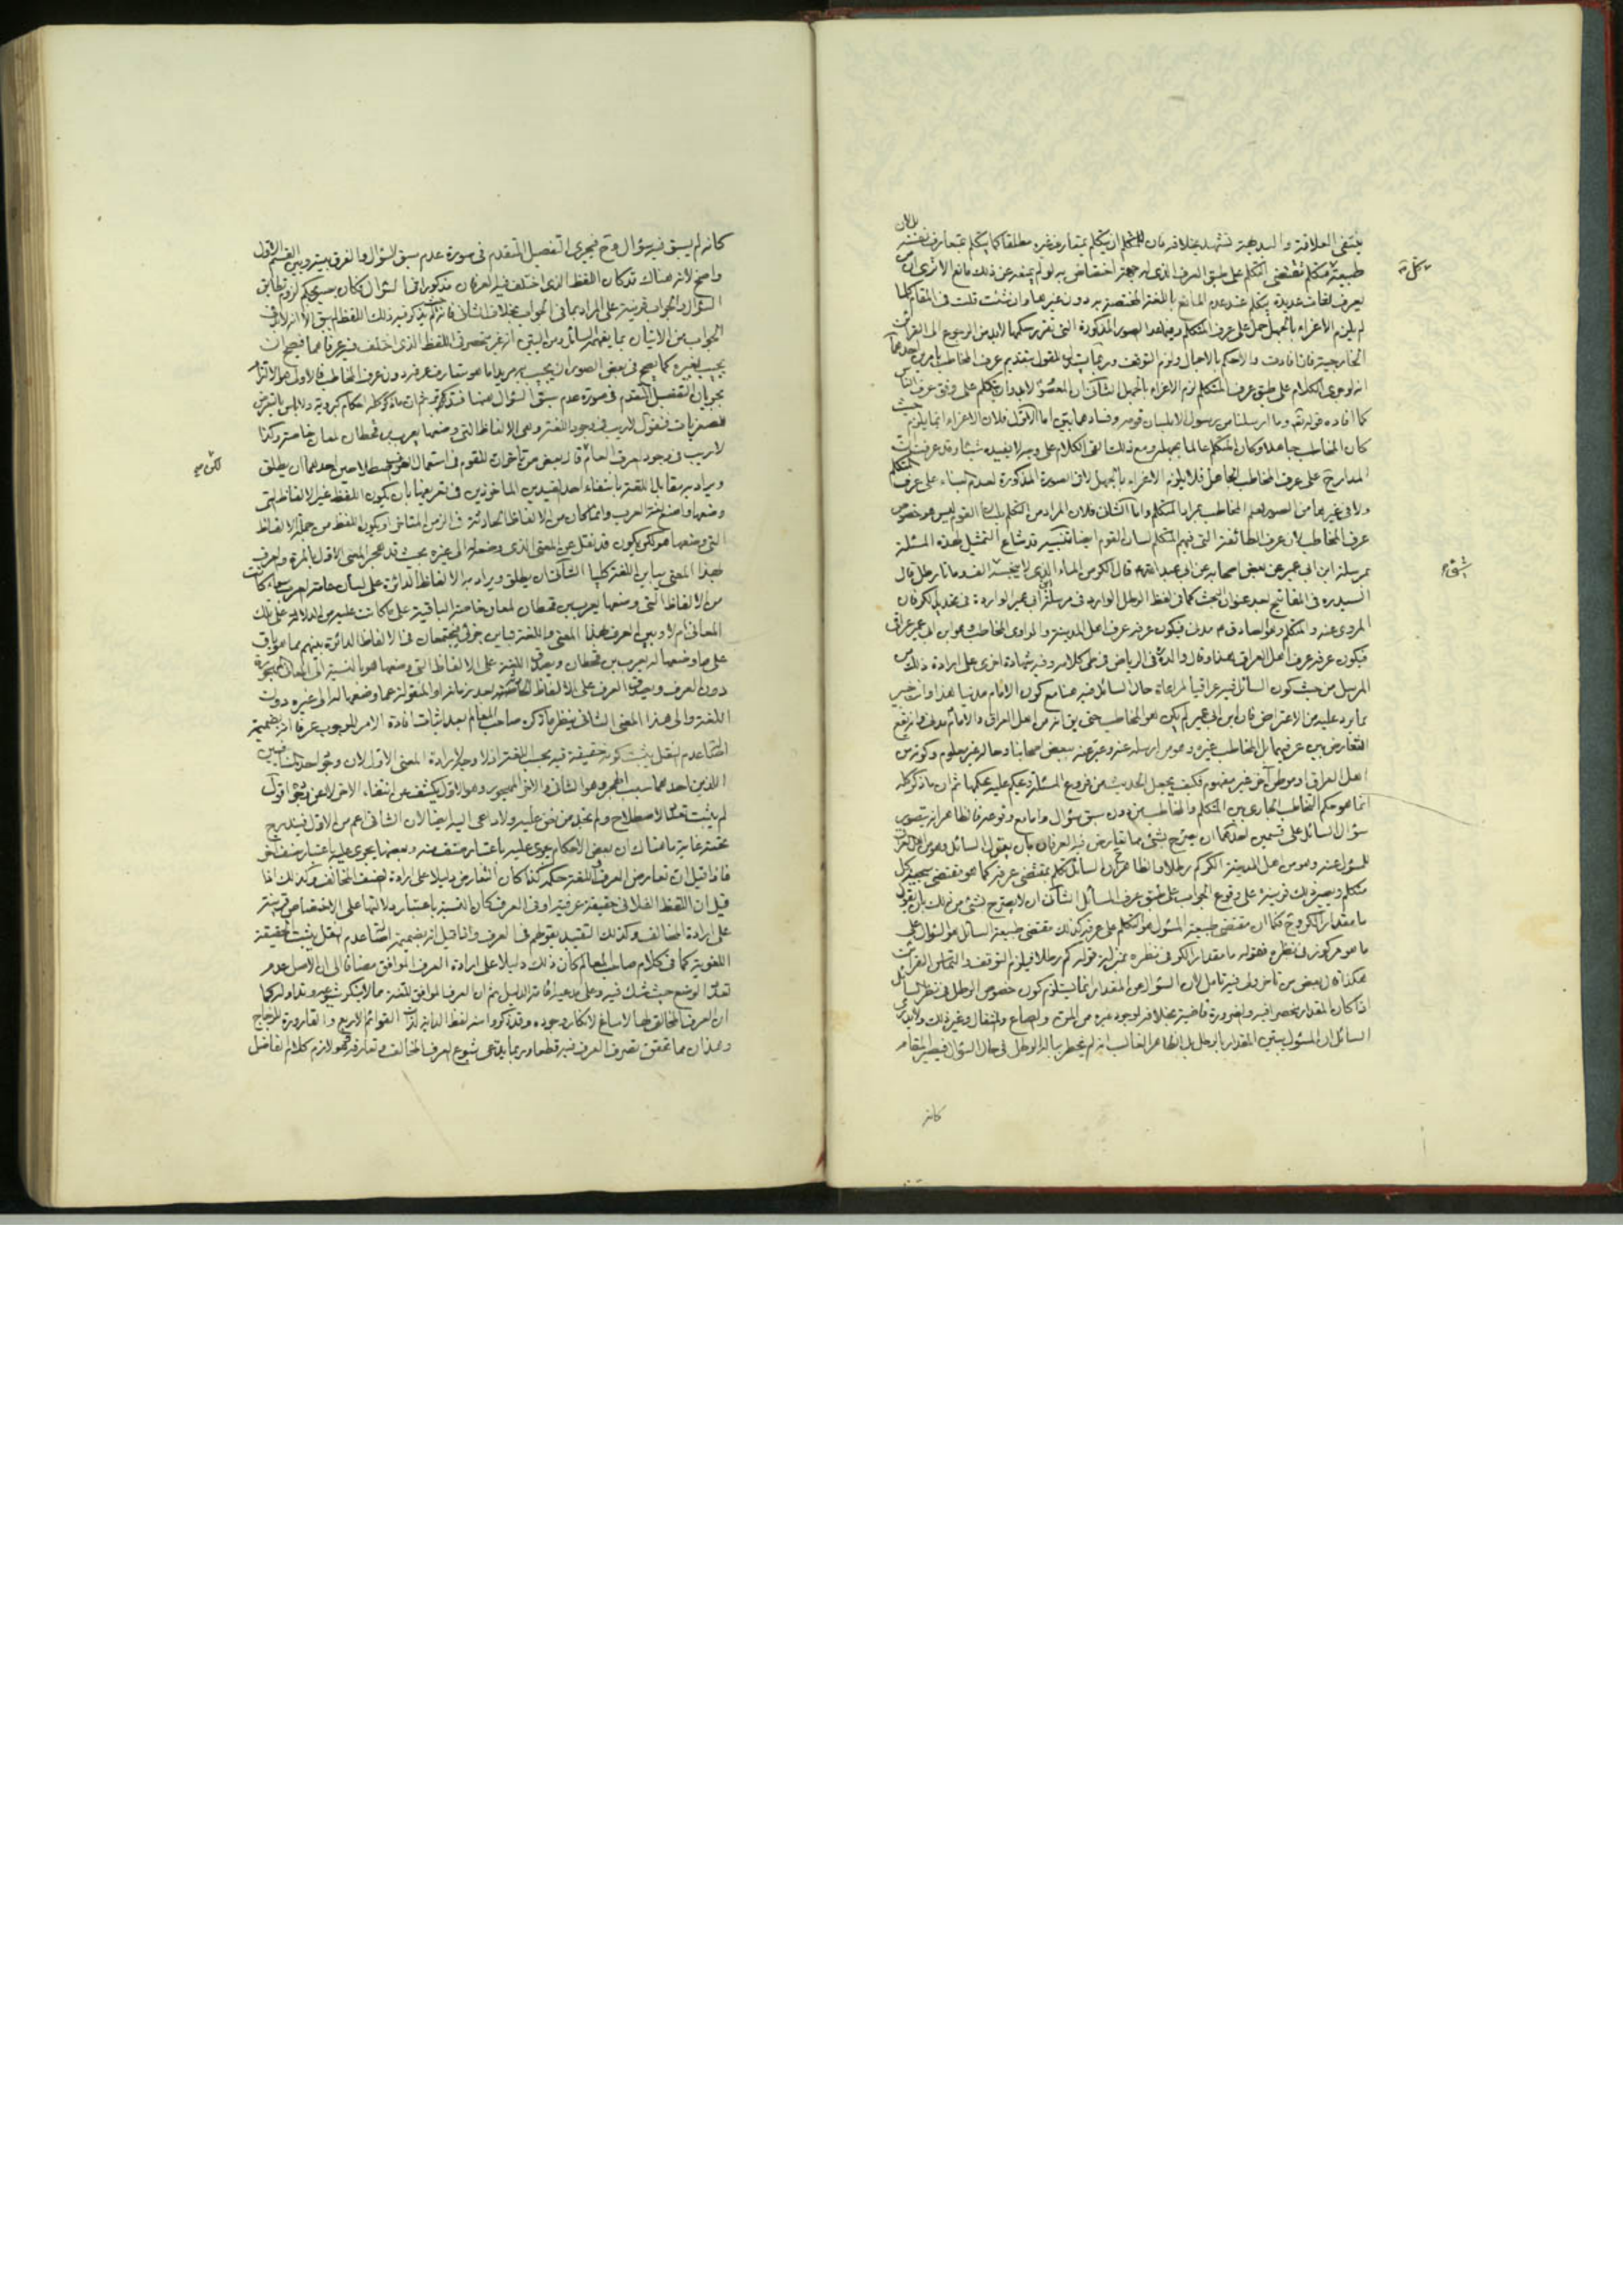 ينتفي العلاقة والبديهة تشهد بخلافه فان للمتكلم ان يتكلم بمتعارف غيره مطلقا كما يتكلم بمتعارف نفسه
طبيعة متكلم تقتضي التكلم على طبق العرف الذي له جهة اختصاص به لو لم يمنعه عن ذلك مانع الا ترى ان من
يعرف لغات عديدة يتكلم عند عدم المانع باللغة المختصة به دون غيرها وان شئت قلت في المقام كلما
لم يلزم الاغراء بالجهل حمل على عرف المتكلم وفيما عدا الصور المذكورة التي تقرر حكمها لابد من الرجوع الى القرائن
الخارجية فان افادت والا حكم بالاجمال ولزم التوقف وربما يستدل للقول بتقديم عرف المخاطب بامرين احدهما
انه لو جرى الكلام على طبق عرف المتكلم لزم الاغراء بالجهل الثاني ان المعصوم لابد وان يتكلم على وفق عرف الناس
كما افاده قوله تعالى وما ارسلنا من رسول الا بلسان قومه وفسادهما بين اما الاول فلان الاغراء انما يلزم حيث
كان المخاطب جاهلا وكان المتكلم عالما بجهله ومع ذلك القى الكلام على وجه لا يفيده شيئا وقد عرفت ان
المدار ح على عرف المخاطب الجاهل فلا يلزم الاغراء بالجهل لا في الصورة المذكورة لعدم البناء على عرف المتكلم
ولا في غيرها من الصور لعلم المخاطب بمراد المتكلم واما الثاني فلان المراد من التكلم بلسان القوم ليس هو خصوص
عرف المخاطب لان عرف الطائفة التي فيهم المتكلم لسان القوم ايضا تنبيه قد شاع التمثيل لهذه المسئلة
بمرسلة ابن ابي عمير عن بعض اصحابه عن ابي عبد الله قال الكر من الماء الذي لا ينجسه الف ومأتا رطل قال
السيد ره في المفاتيح بعد عنوان البحث كما في لفظ الرطل الوارد في مرسلة ابن ابي عمير الواردة في تحديد الكر فان
المروي عنه والمتكلم وهو الصادق ع مدني فيكون عرفه عرف اهل المدينة والراوي المخاطب وهو ابن ابي عمير عراقي
فيكون عرفه عرف اهل العراق هذا وقال والده في الرياض في طي كلامه وفيه شهادة اخرى على ارادة ذلك من
المرسل من حيث كون السائل فيه عراقيا لمراعاة حال السائل فيه هنا مع كون الامام مدنيا هذا وانت خبير
بما يرد عليه من الاعتراض فان ابن ابي عمير لم يكن هو المخاطب حتى يقال انه من اهل العراق والامام مدني فانه يقع
التعارض بين عرفيهما بل المخاطب غيره وهو من ارسله عنه وعبر عنه ببعض اصحابنا وحاله غير معلوم وكونه من
اهل العراق او موطن آخر غير مفهوم فكيف يجعل الحديث من فروع المسئلة ويحكم عليه بحكمها ثم ان ما ذكر كله
انما هو حكم التخاطب الجاري بين المتكلم والمخاطب من دون سبق سؤال واما مع وقوعه فالظاهر انه يتصور
سؤال السائل على قسمين احدهما ان يصرح بشيء مما تعارض فيه العرفان بان يقول السائل وهو من اهل العراق
للمسؤل عنه وهو من اهل المدينة الكر كم رطلا والظاهر ان السائل تكلم بمقتضى عرفه كما هو مقتضى سجية كل
متكلم ويصير ذلك قرينة على وقوع الجواب على طبق عرف السائل الثاني ان لا يصرح بشيء من ذلك بان يقول
ما مقدار الكر وح فكما ان مقتضى طبيعة المسئول هو التكلم على عرفه كذلك مقتضى طبيعة السائل هو السؤال على
ما هو مركوز في نظره فقوله ما مقدار الكر في نظره بمنزلة قوله كم رطلا فيلزم التوقف والتماس القرائن
هكذا قال بعض من تأخر وفيه تأمل لان السؤال عن المقدار انما يستلزم كون خصوص الرطل في نظر السائل
اذا كان المقدار منحصرا فيه والضرورة قاضية بخلافه لوجود غيره من المن والصاع والمثقال وغير ذلك ولا يدري
السائل ان المسئول يبين المقدار بالرطل بل الظاهر الغالب انه لم يخطر بباله الرطل في حال السؤال فيصير المقام
كانه
كانه لم يسبق فيه سؤال وح فيجري التفصيل المتقدم في صورة عدم سبق السؤال والفرق بينه وبين القسم الاول
واضح لانه هناك قد كان اللفظ الذي اختلف فيه العرفان مذكورا في السؤال فكان يصير بحكم لزوم تطابق
السؤال والجواب قرينة على المراد بما في الجواب بخلاف الثاني فانه لم يذكر فيه ذلك اللفظ لم يبق الا انه لابد في
الجواب من الاتيان بما يفهمه السائل ومن البين انه غير منحصر في اللفظ الذي اختلف فيه عرفاهما فيصح ان
يجيب بغيره كما يصح في بعض الصور ان يجيب به مريدا ما هو متعارف عرفه دون عرف المخاطب فالاولى هو الالتزام
بجريان التفصيل المتقدم في صورة عدم سبق السؤال هنا فتدبر ثم ان ما ذكر كله احكام كبروية ولا بأس بالتعرض
للصغريات فنقول لا ريب في وجود اللغة وهي الالفاظ التي وضعها يعرب بن قحطان لمعان خاصة وكذا
لا ريب في وجود العرف العام قال بعض من تأخر ان للقوم في استعمال العرف اصطلاحين احدهما ان يطلق
ويراد به مقابل اللغة بانتفاء احد القيدين الماخوذين في تعريفها بان يكون اللفظ غير الالفاظ التي
وضعها واضع لغة العرب وانما كان من الالفاظ الحادثة في الزمن المتأخر او يكون اللفظ من جملة الالفاظ
التي وضعها هو لكن يكون قد نقل عن المعنى الذي وضعه له الى غيره بحيث قد هجر المعنى الاول بالمرة والعرف
بهذا المعنى يباين اللغة كليا الثاني ان يطلق ويراد به الالفاظ الدائرة على لسان عامة العرب سواء كانت
من الالفاظ التي وضعها يعرب بن قحطان لمعان خاصة الباقية على ما كانت عليه من الدلالة على تلك
المعاني ام لا وبين العرف بهذا المعنى واللغة تباين جزئي فيجتمعان في الالفاظ الدائرة بينهم مما هو باق
على ما وضعها له يعرب بن قحطان ويصدق اللغة على الالفاظ التي وضعها هو بالنسبة الى المعاني المهجورة
دون العرف ويصدق العرف على الالفاظ الحادثة بعد زمانه او المنقولة عما وضعها له الى غيره دون
اللغة والى هذا المعنى الثاني ينظر ما ذكره صاحب المعالم بعد اثبات افادة الامر للوجوب عرفا انه بضميمة
اصالة عدم النقل يثبت كونه حقيقة فيه بحسب اللغة
اللذين احدهما سبب الهجر وهو الثاني والآخر المهجور وهو الاول يكشف عن انتفاء الآخر
لم يثبت تعدد الاصطلاح ولم نجد من نص عليه ولا داعي اليه ايضا لان الثاني اعم من الاول فيندرج
تحته غاية ما هناك ان بعض الاحكام يجري عليه باعتبار صنف منه وبعضها يجري عليه باعتبار صنف آخر
فاذا قيل ان تعارض العرف واللغة حكمه كذا كان التعارض دليلا على ارادة الصنف المخالف وكذلك اذا
قيل ان اللفظ الفلاني حقيقة عرفية او في العرف كان النسبة باعتبار دلالتها على الاختصاص قرينة
على ارادة المخالف وكذلك التقييد بقولهم في العرف واذا قيل انه بضميمة اصالة عدم النقل يثبت الحقيقة
اللغوية كما في كلام صاحب المعالم كان ذلك دليلا على ارادة العرف الموافق مضافا الى ان الاصل عدم
تعدد الوضع حيث شك فيه وعلى مدعيه اقامة الدليل ثم ان العرف الموافق للغة مما لا ينكر شيوعه وتداوله كما
ان العرف المخالف لها لا مساغ لانكار وجوده وقد ذكروا منه لفظ الدابة لذات القوائم الاربع والقارورة للزجاج
وهذان مما تحقق تصرف العرف فيه قطعا وربما يدعى شيوع العرف المخالف وتعارفه وهو لازم كلام الفاضل